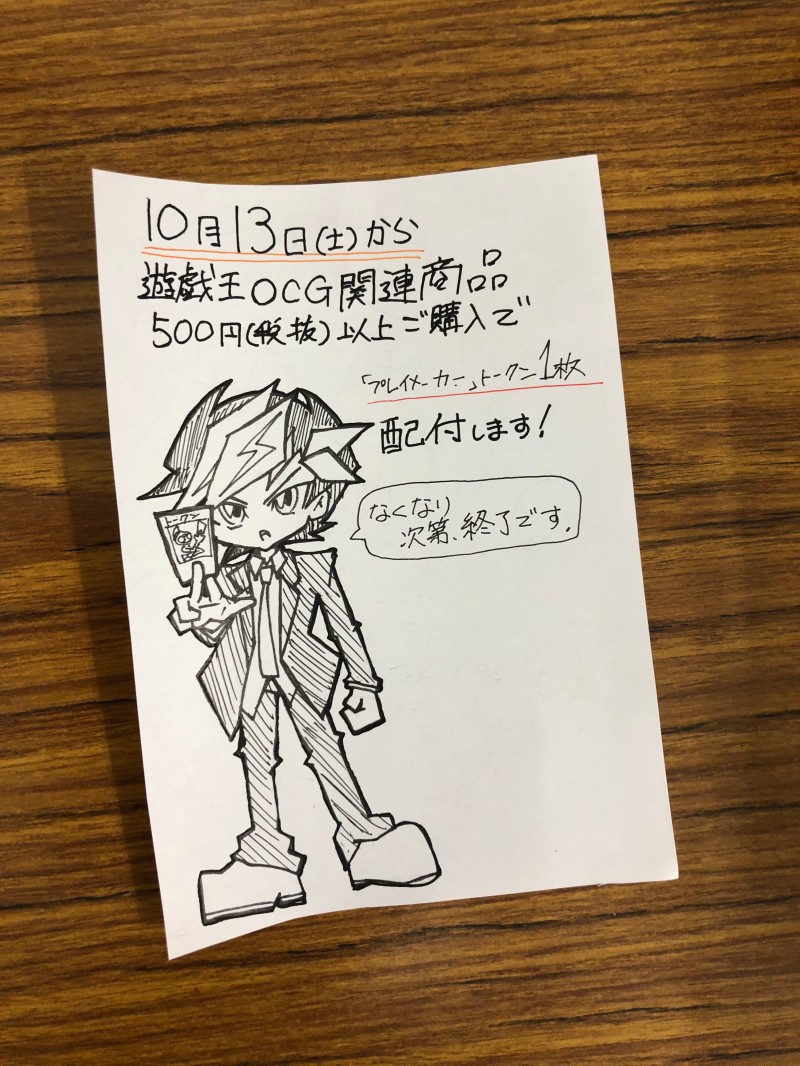 10月13日(土)から
遊戯王OCG関連商品
500円(税抜)以上ご購入で
「プレイメーカー」トークン1枚
配付します!
なくなり
次第、終了です。
トークン